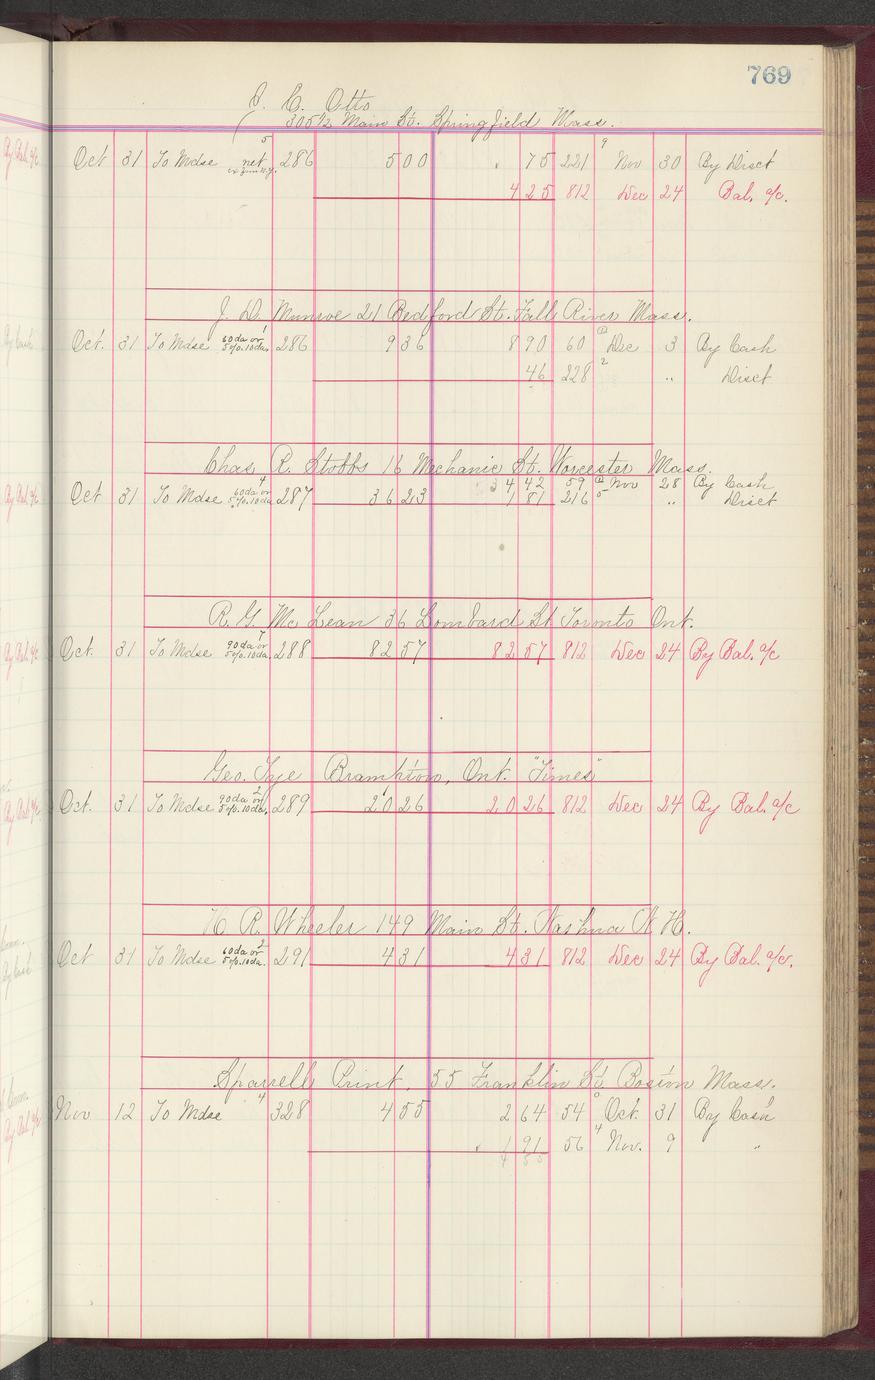 769
J. C. Otto
305 1/2 Main St. Springfield Mass.
Oct 31 To Mdse net 5 286 5 00 75 221 9 Nov 30 By Disct
4 25 812 Dec 24 Bal. a/c.
J. D. Munroe 21 Bedford St. Fall River Mass.
Oct. 31 To Mdse 60 da or 5% 10 da. 1 286 9 36 8 90 60 Dec 3 By Cash
46 228 2 " Disct
Chas. R. Stobbs 16 Mechanic St. Worcester Mass.
Oct 31 To Mdse 60 da or 5% 10 da 4 287 36 23 34 42 59 Nov 28 By Cash
1 81 216 5 " Disct
R. G. Mc Lean 36 Lombard St Toronto Ont.
Oct. 31 To Mdse 90 da or 5% 10 da. 7 288 82 57 82 57 812 Dec 24 By Bal. a/c
Geo. Tye Brampton, Ont. "Times"
Oct. 31 To Mdse 90 da or 5% 10 da. 2 289 20 26 20 26 812 Dec 24 By Bal. a/c
H. R. Wheeler 149 Main St. Nashua N. H.
Oct 31 To Mdse 60 da or 5% 10 da. 2 291 4 31 4 31 812 Dec 24 By Bal. a/c.
Sparrell Print. 55 Franklin St. Boston Mass.
Nov 12 To Mdse 4 328 4 55 2 64 54 Oct. 31 By Cash
1 91 56 4 Nov. 9 "